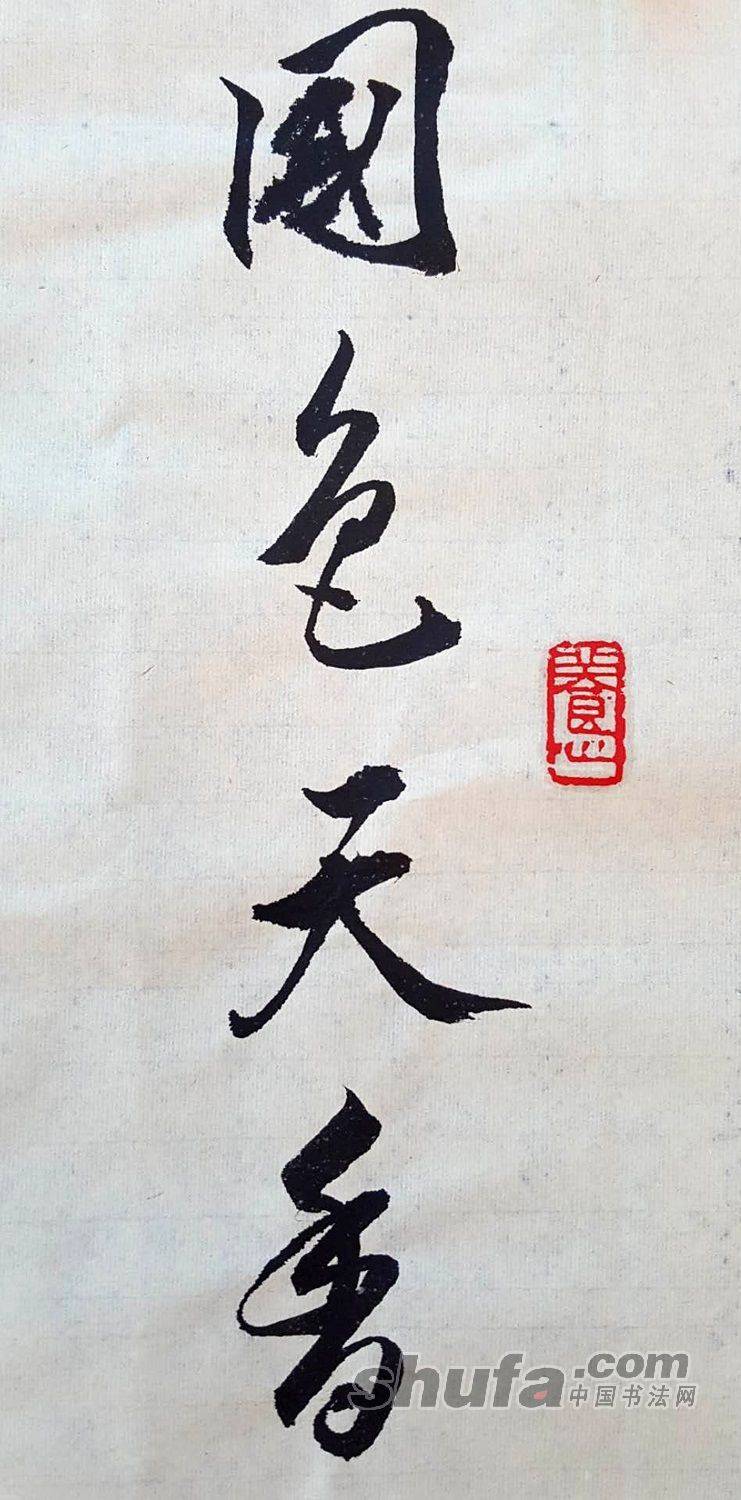 國色天香
shufa.com
中国书法网